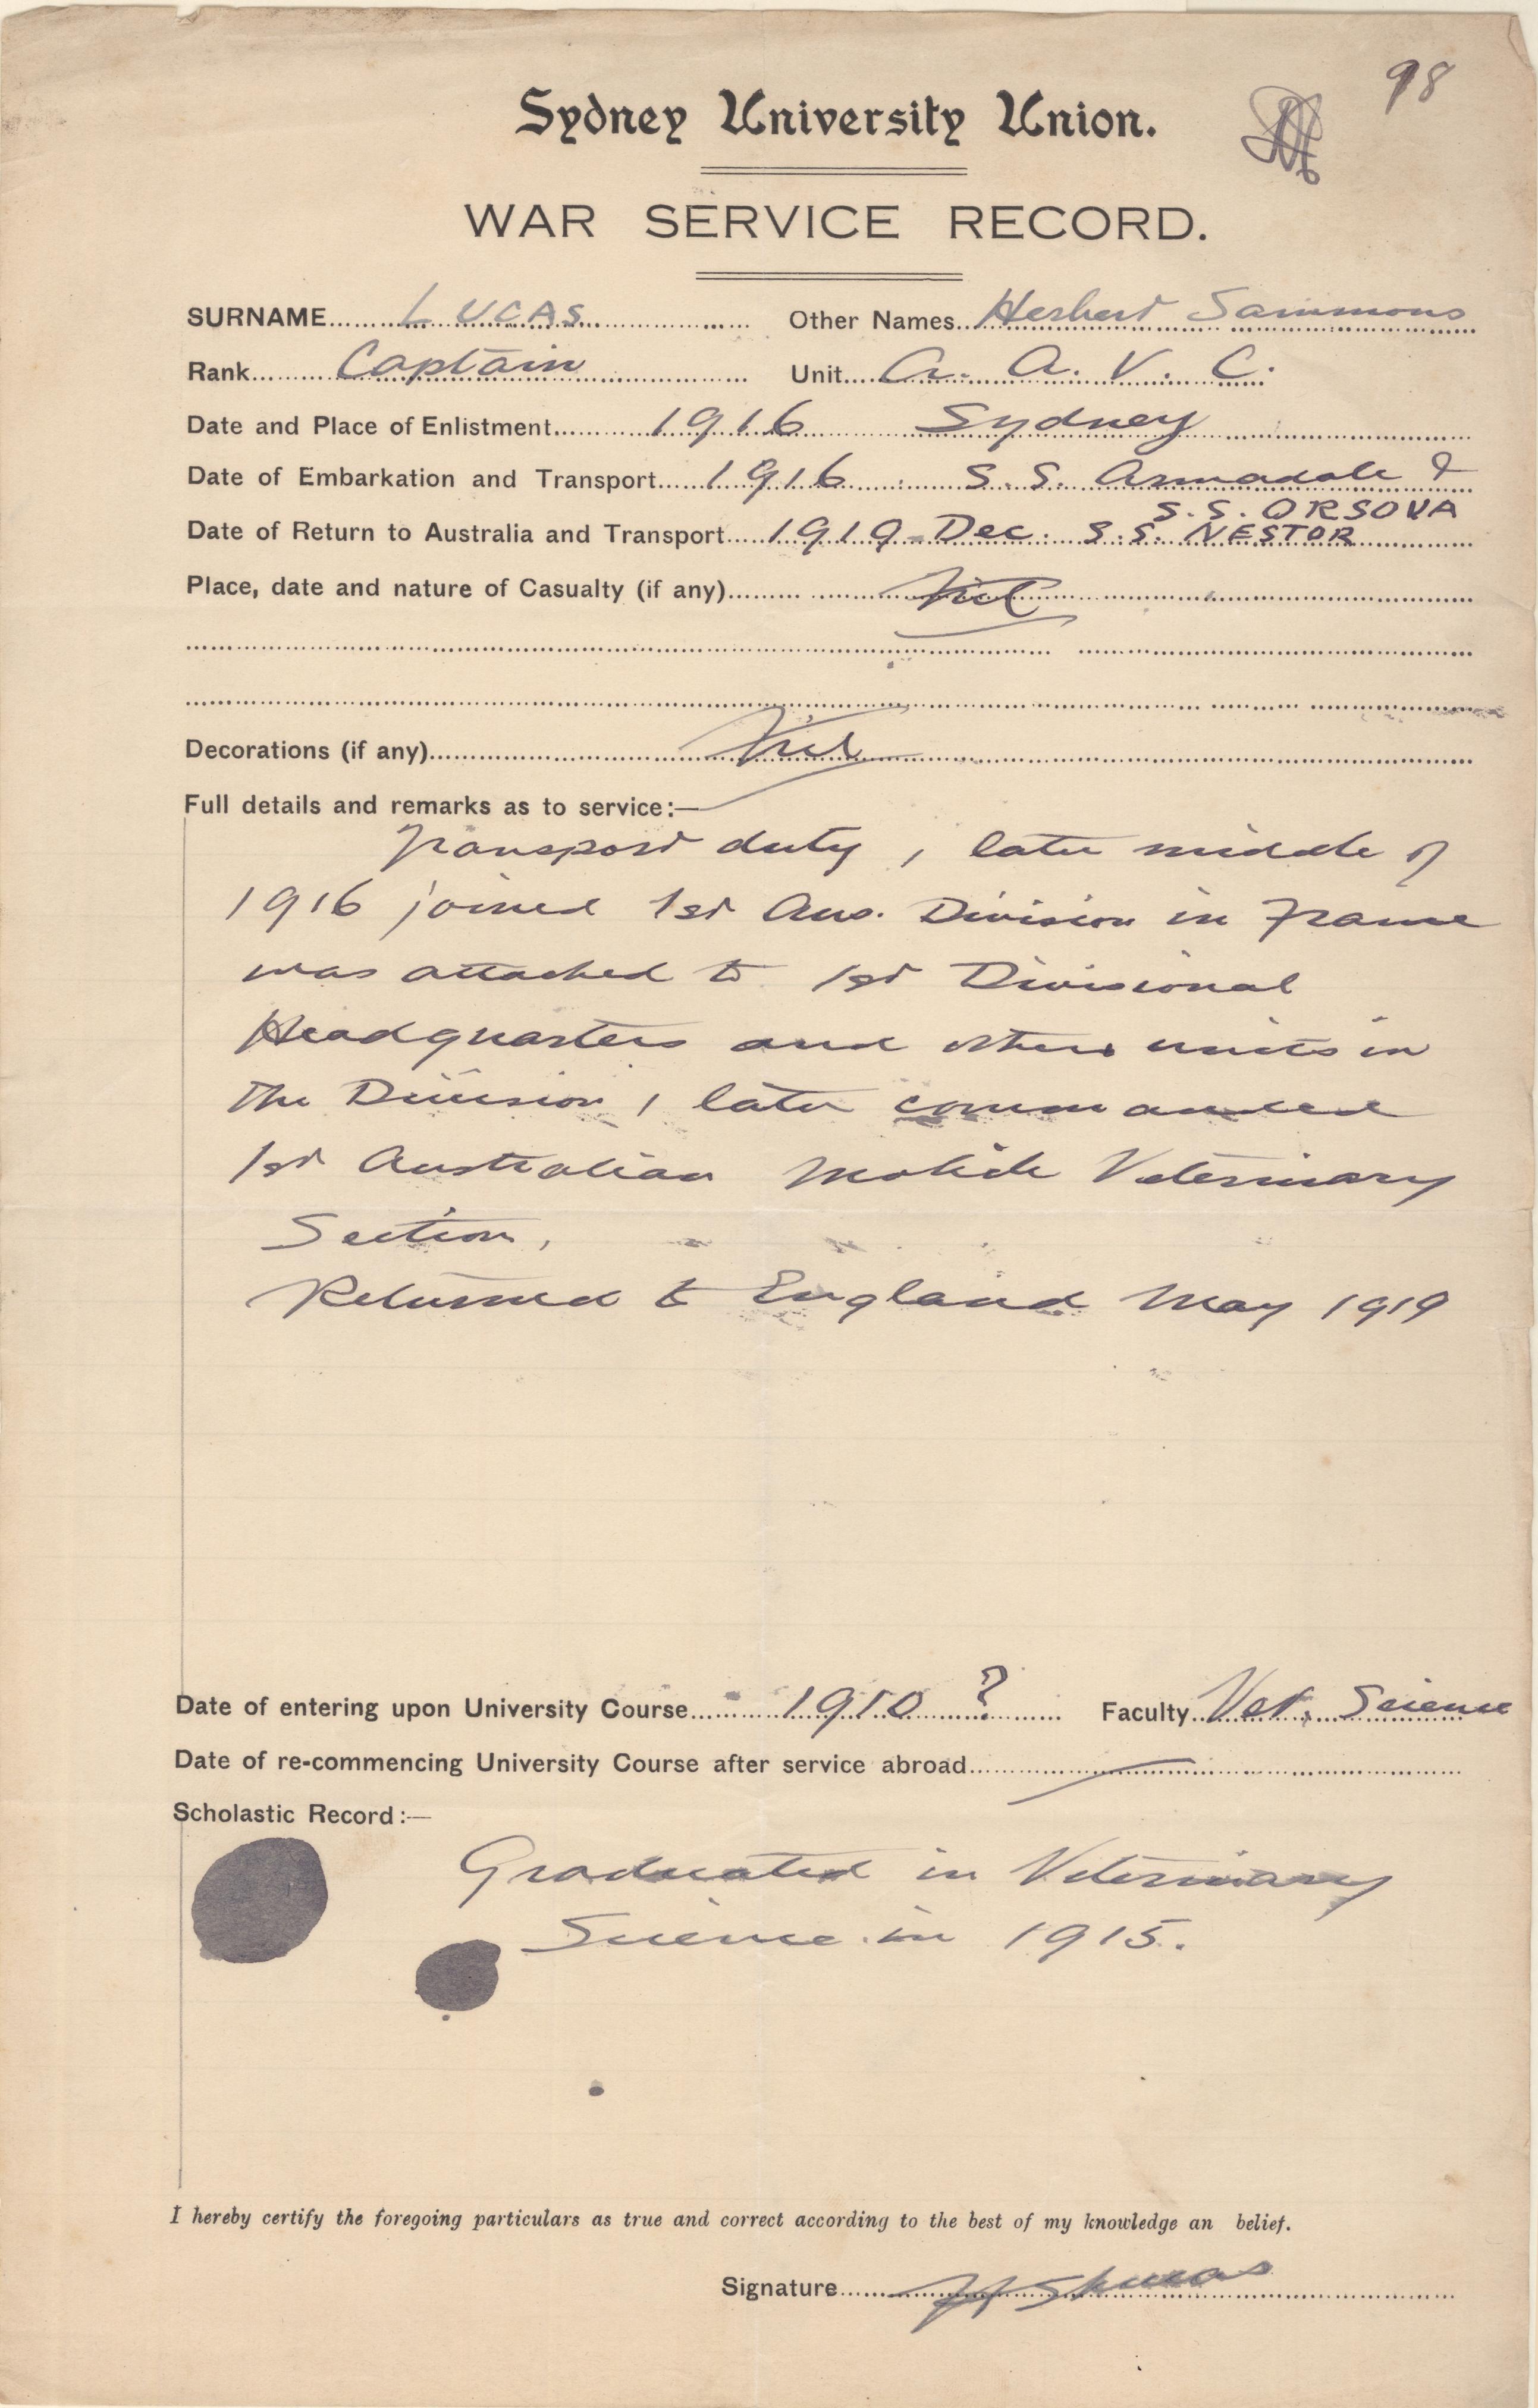 98
Sydney University Union.
WAR SERVICE RECORD.
SURNAME LUCAS Other Names Herbert Sammons
Rank Captain Unit A. A. V. C.
Date and Place of Enlistment 1916 Sydney
Date of Embarkation and Transport 1916 S.S. Armadale &
S.S. ORSOVA
Date of Return to Australia and Transport 1919 - Dec. S.S. NESTOR
Place, date and nature of Casualty (if any) Nil
Decorations (if any) Nil
Full details and remarks as to service:—
Transport duty, later middle of
1916 joined 1st Aus. Division in France
was attached to 1st Divisional
Headquarters and other units in
the Division, later commanded
1st Australian Mobile Veterinary
Section,
Returned to England May 1919
Date of entering upon University Course 1910 ? Faculty Vet. Science
Date of re-commencing University Course after service abroad —
Scholastic Record:—
Graduated in Veterinary
Science in 1915.
I hereby certify the foregoing particulars as true and correct according to the best of my knowledge an belief.
Signature HSLucas